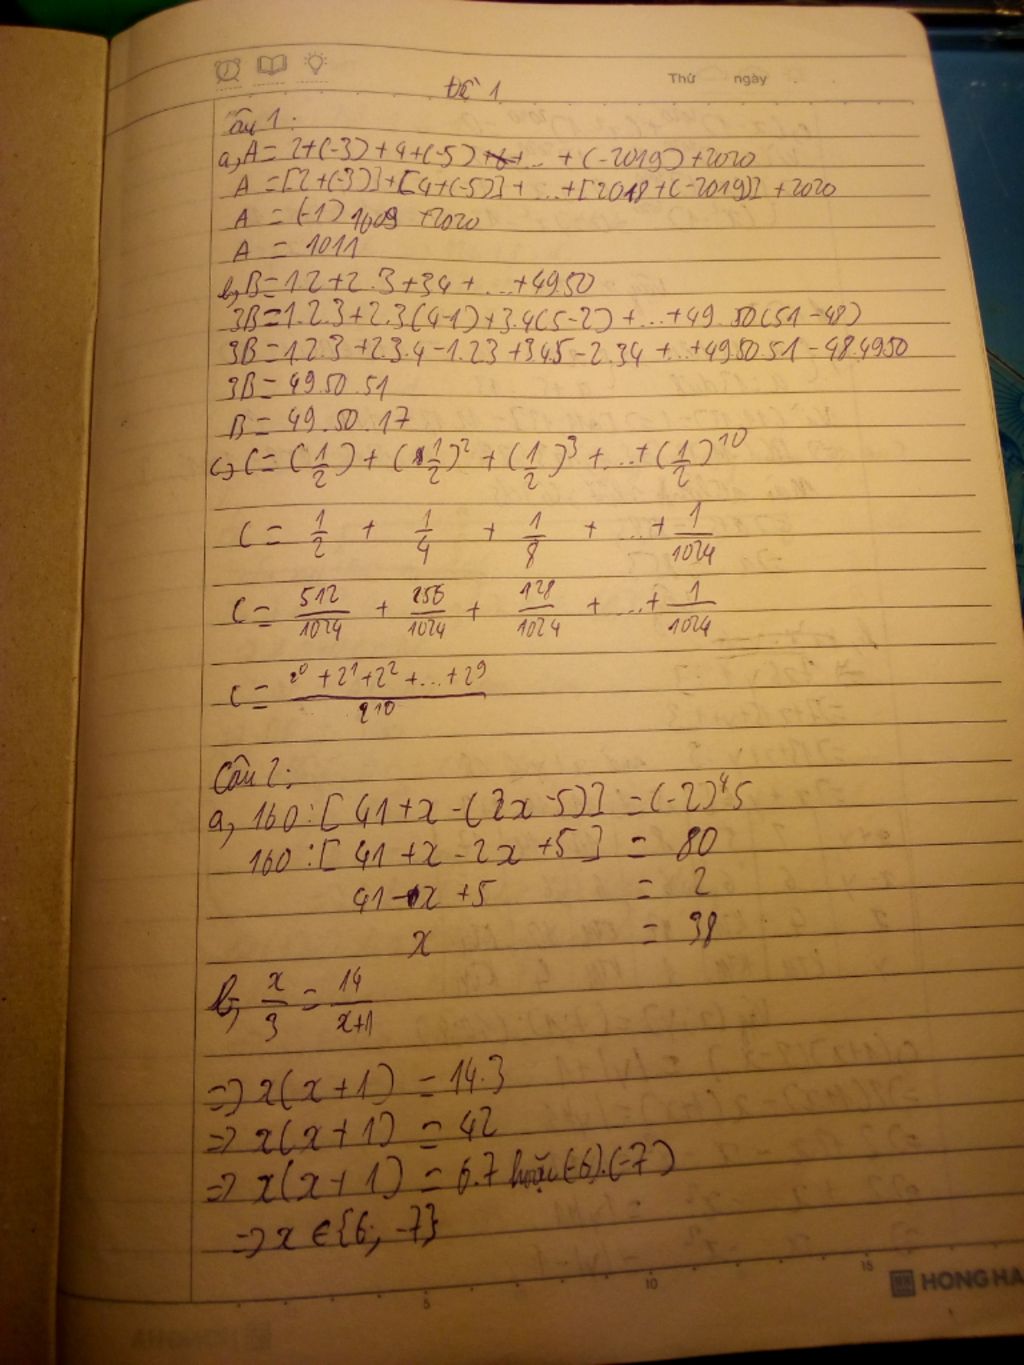 Thứ ngày
Đề 1
Câu 1:
a, A = 2+(-3)+4+(-5)+6+...+(-2019)+2020
A = [2+(-3)]+[4+(-5)]+...+[2018+(-2019)]+2020
A = (-1)1009 +2020
A = 1011
b, B=1.2+2.3+3.4+...+49.50
3B=1.2.3+2.3(4-1)+3.4(5-2)+...+49.50(51-48)
3B=1.2.3+2.3.4-1.2.3+3.4.5-2.3.4+...+49.50.51-48.49.50
3B=49.50.51
B = 49.50.17
c, C=(1/2)+(1/2)²+(1/2)³+...+(1/2)¹⁰
C = 1/2 + 1/4 + 1/8 + ...+ 1/1024
C = 512/1024 + 256/1024 + 128/1024 + ...+ 1/1024
C = (2⁰+2¹+2²+...+2⁹)/2¹⁰
Câu 2:
a, 160:[41+x-(2x-5)] =(-2)⁴5
160:[41+x-2x+5] = 80
41-x+5 = 2
x = 38
b, x/3 = 14/(x+1)
=> x(x+1) = 14.3
=> x(x+1) = 42
=> x(x+1) = 6.7 hoặc (-6).(-7)
=> x ∈ {6; -7}
5 10 15
HONG HA